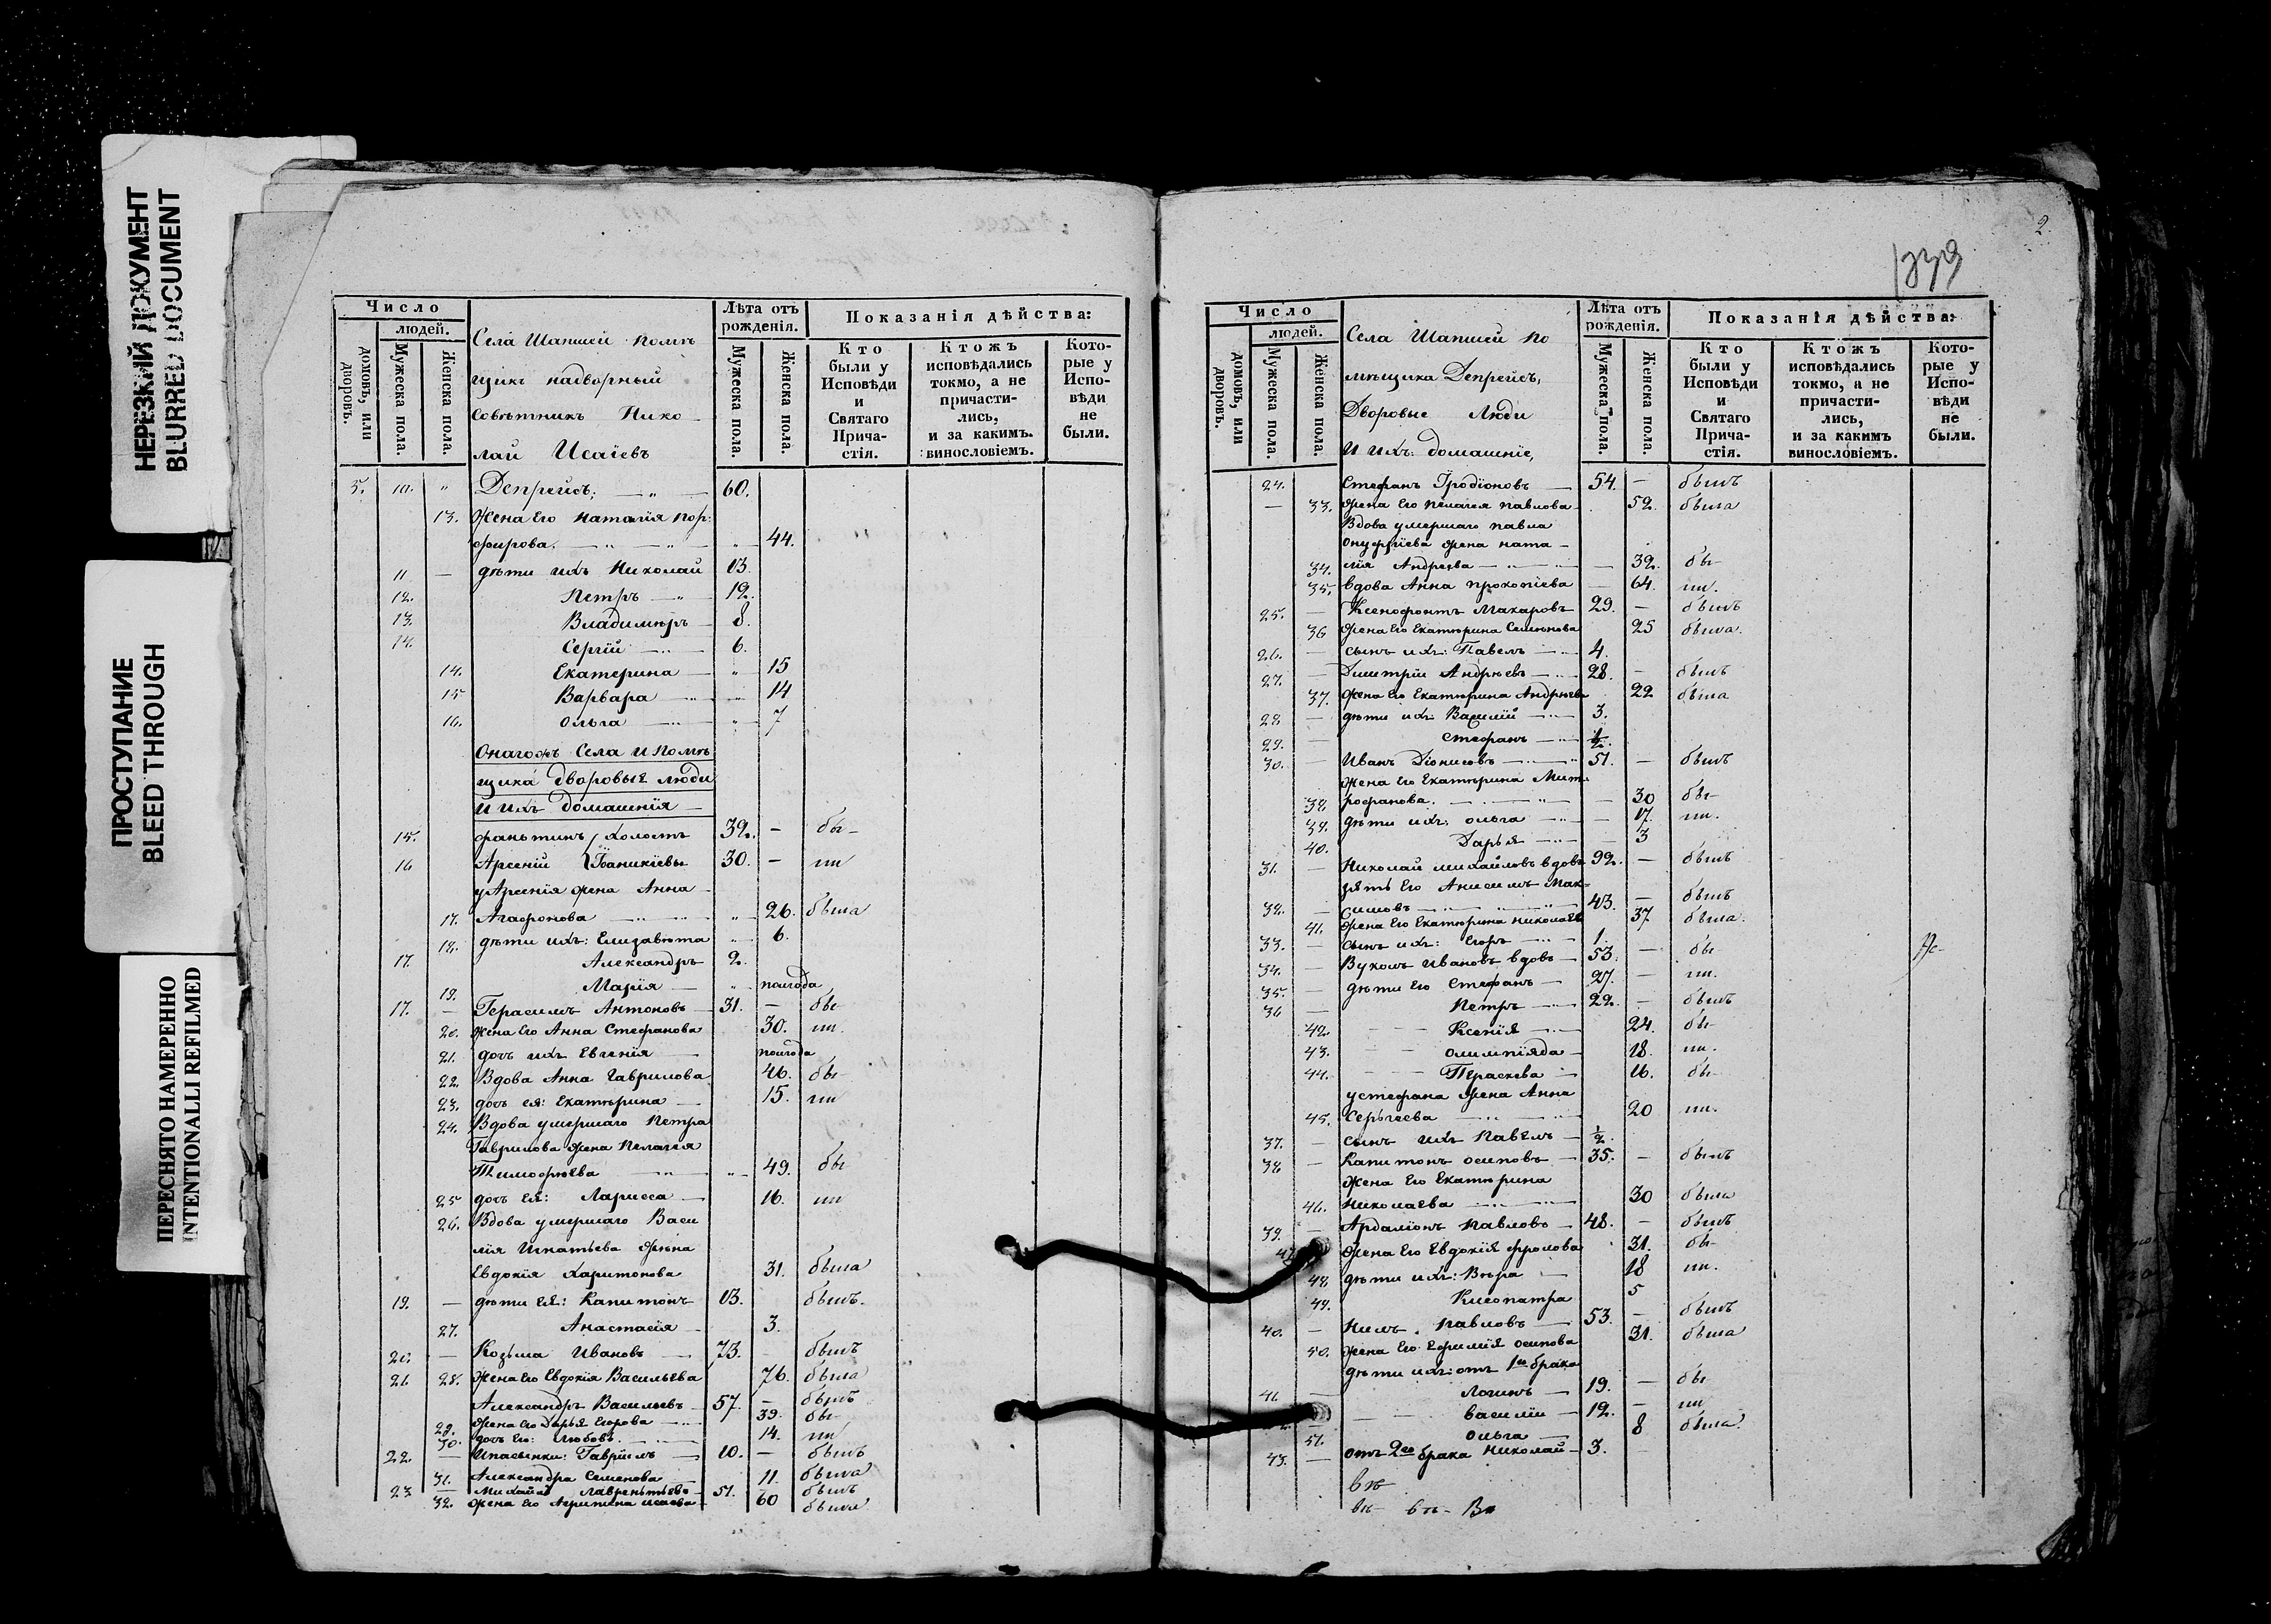 НЕРЕЗКИЙ ДОКУМЕНТ
BLURRED DOCUMENT
ПРОСТУПАНИЕ
BLEED THROUGH
ПЕРЕСНЯТО НАМЕРЕННО
INTENTIONALLI REFILMED
Число
людей.
домовъ, или дворовъ.
Мужеска пола.
Женска пола.
Села Шапшей помѣ
щикъ надворный
совѣтникъ Нико
лай Исаіевъ
Лѣта отъ рожденія.
Мужеска пола.
Женска пола.
Показанія дѣйства:
Кто были у Исповѣди и Святаго Прича- стія.
Ктожъ исповѣдались токмо, а не причасти- лись, и за какимъ. винословіемъ.
Кото- рые у Испо- вѣди не были.
5. 10. " Депрейсъ; — " — 60.
13. Жена Его Наталія Пор:
фирова. — " — " — " 44.
11 — дѣти ихъ Николай 13.
12. Петръ — " 12.
13. Владимѣръ 8.
14. Сергій — 6.
14. Екатерина — " 15
15 Варвара — 14
16. Ольга — " 7
Онагожъ Села и помѣ
щика дворовые люди
и ихъ домашнія —
15. холостъ 32. — бы-
16 Арсеній Іоаникіевы 30. — ли
у Арсенія жена Анна
17. Агафонова — " 26. была
18. дѣти ихъ: Елизавета " 6.
17. Александръ 2.
19. Марія — " полгода
17. — Герасимъ Антоновъ 31. — бы-
20. жена Его Анна Стефанова 30. ли.
21. дочь ихъ Евгенія — полгода
22. Вдова Анна Гаврилова 46. бы-
23. дочь ея: Екатерина — 15. ли
24. Вдова умершаго Петра
Гаврилова жена Пелагея
Тимофѣева — " 49. бы
25 дочь Ея: Ларисса — 16. ли
26. Вдова умершаго Васи
лія Игнатьева жена
Евдокія Харитонова 31. была
19. — дѣти ея: Капитонъ 13. былъ.
27. Анастасія 3.
20. — Козьма Ивановъ — 73. былъ
21 28. жена Его Евдокія Васильева 76. была
Александръ Васильевъ 57. — былъ
29. жена его Дарья Егорова — 39. бы-
30. дочь Его: Любовь. 14. ли
22. — Гаврiилъ — 10. — былъ
31. Александра Семенова — 11. была
23 — Михайлъ Лаврентьевъ 51. былъ
32. жена Его Агрипина Исаева 60 была
2.
Число
людей.
домовъ, или дворовъ.
Мужеска пола.
Женска пола.
Села Шапшей по
мѣщика Депрейсъ,
Дворовые Люди
и ихъ: домашніе,
Лѣта отъ рожденія.
Мужеска пола.
Женска пола.
Показанія дѣйства:
Кто были у Исповѣди и Святаго Прича- стія.
Ктожъ исповѣдались токмо, а не причасти- лись, и за какимъ винословіемъ.
Кото- рые у Испо- вѣди не были.
24. Стефанъ Иродіоновъ — 54. — былъ
— 33. жена Его Пелагея Павлова 52. была
Вдова умершаго Павла
Онуфріева жена Ната —
34. лія Андреева — 32. бы-
35. вдова Анна Прокопіева — 64. ли.
25. — Ксенофонтъ Макаровъ 29. — былъ
36 жена Его Екатерина Семенова 25 была.
26. — сынъ ихъ: Павелъ — 4.
27. — Димитрій Андреевъ — 28. — былъ
37. жена Его Екатерина Андреева 22 была
28. — дѣти ихъ: Василій — 3.
29. — Стефанъ — ½.
30. — Иванъ Діонисовъ — 51. — былъ
жена Его Екатерина Мит-
38. рофанова. — — 30 бы-
39. дѣти ихъ: Ольга — 17. ли.
40. Дарья — — 3
31. — Николай Михайловъ вдовъ 92. — былъ
зять Его Анисимъ Мак-
32. — симовъ — 43. — былъ
41. жена Его Екатерина Николаев 37 была.
33. — сынъ ихъ: Егоръ — 1.
34. — Вуколъ Ивановъ вдовъ — 53. — бы
35. — дѣти Его Стефанъ — 27. — ли.
36 — Петръ — 22. — былъ
42. Ксенія — 24. бы-
43. Олимпіяда — 18. ли.
44. Параскева — 16. бы-
у Стефана жена Анна
45. Сергѣева — 20 ли.
37. — сынъ ихъ Павелъ — ½.
38 — Капитонъ Осиповъ — 35. — былъ
жена Его Екатерина
46. Николаева — 30 была
39. — Ардаліонъ Павловъ — 48. — былъ
47. жена Его Евдокія Фролова 31. бы-
48. дѣти ихъ: Вѣра — 18 ли.
49. Клеопатра 5
40. — Нилъ Павловъ — 53. — былъ
50. жена Его Ефимія Осипова 31. была
дѣти ихъ: отъ 1го брака
41. — Логинъ — 19. — бы-
— Василій — 12. — ли
51. Ольга — 8 была.
43. — отъ 2го брака Николай — 3. —
въ
въ- въ- Въ